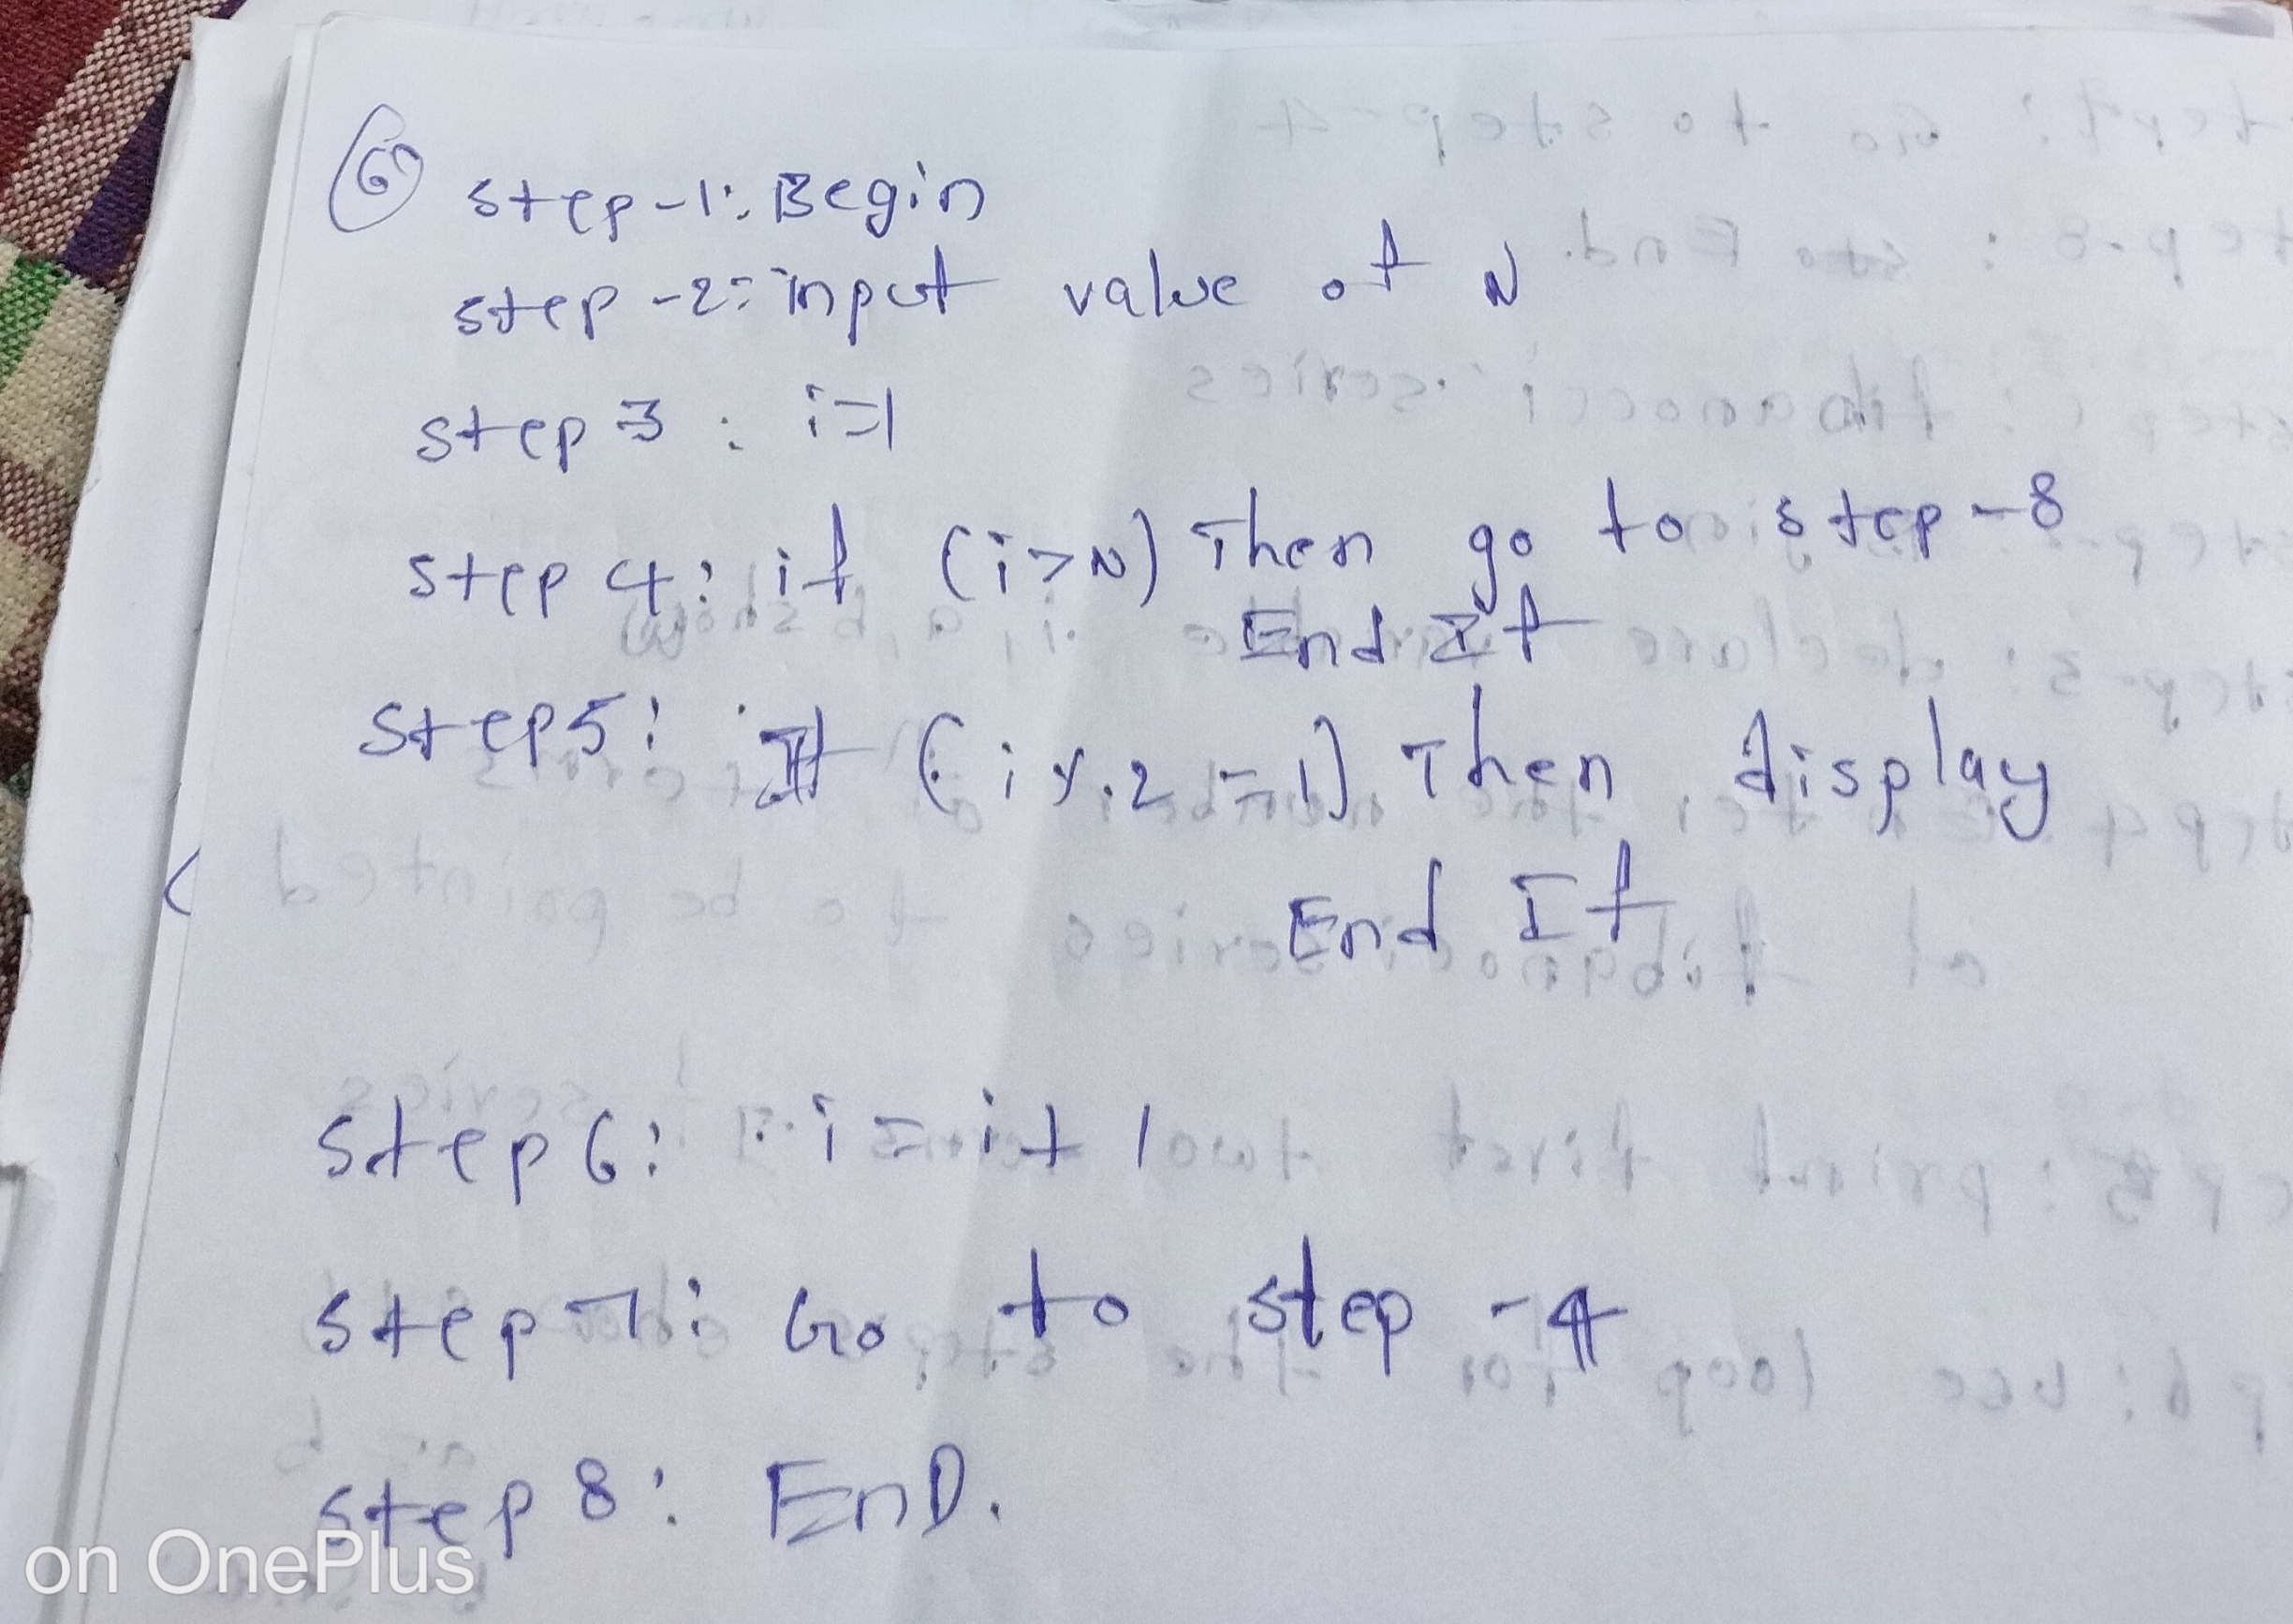 6
step-1: Begin
step-2: input value of N
step 3 : i=1
step 4: if (i>N) Then go to step-8
End If
step 5: If (i%2=1) Then display
End If
step 6: i = i+1
step 7: Go to step-4
step 8: EnD.
on OnePlus